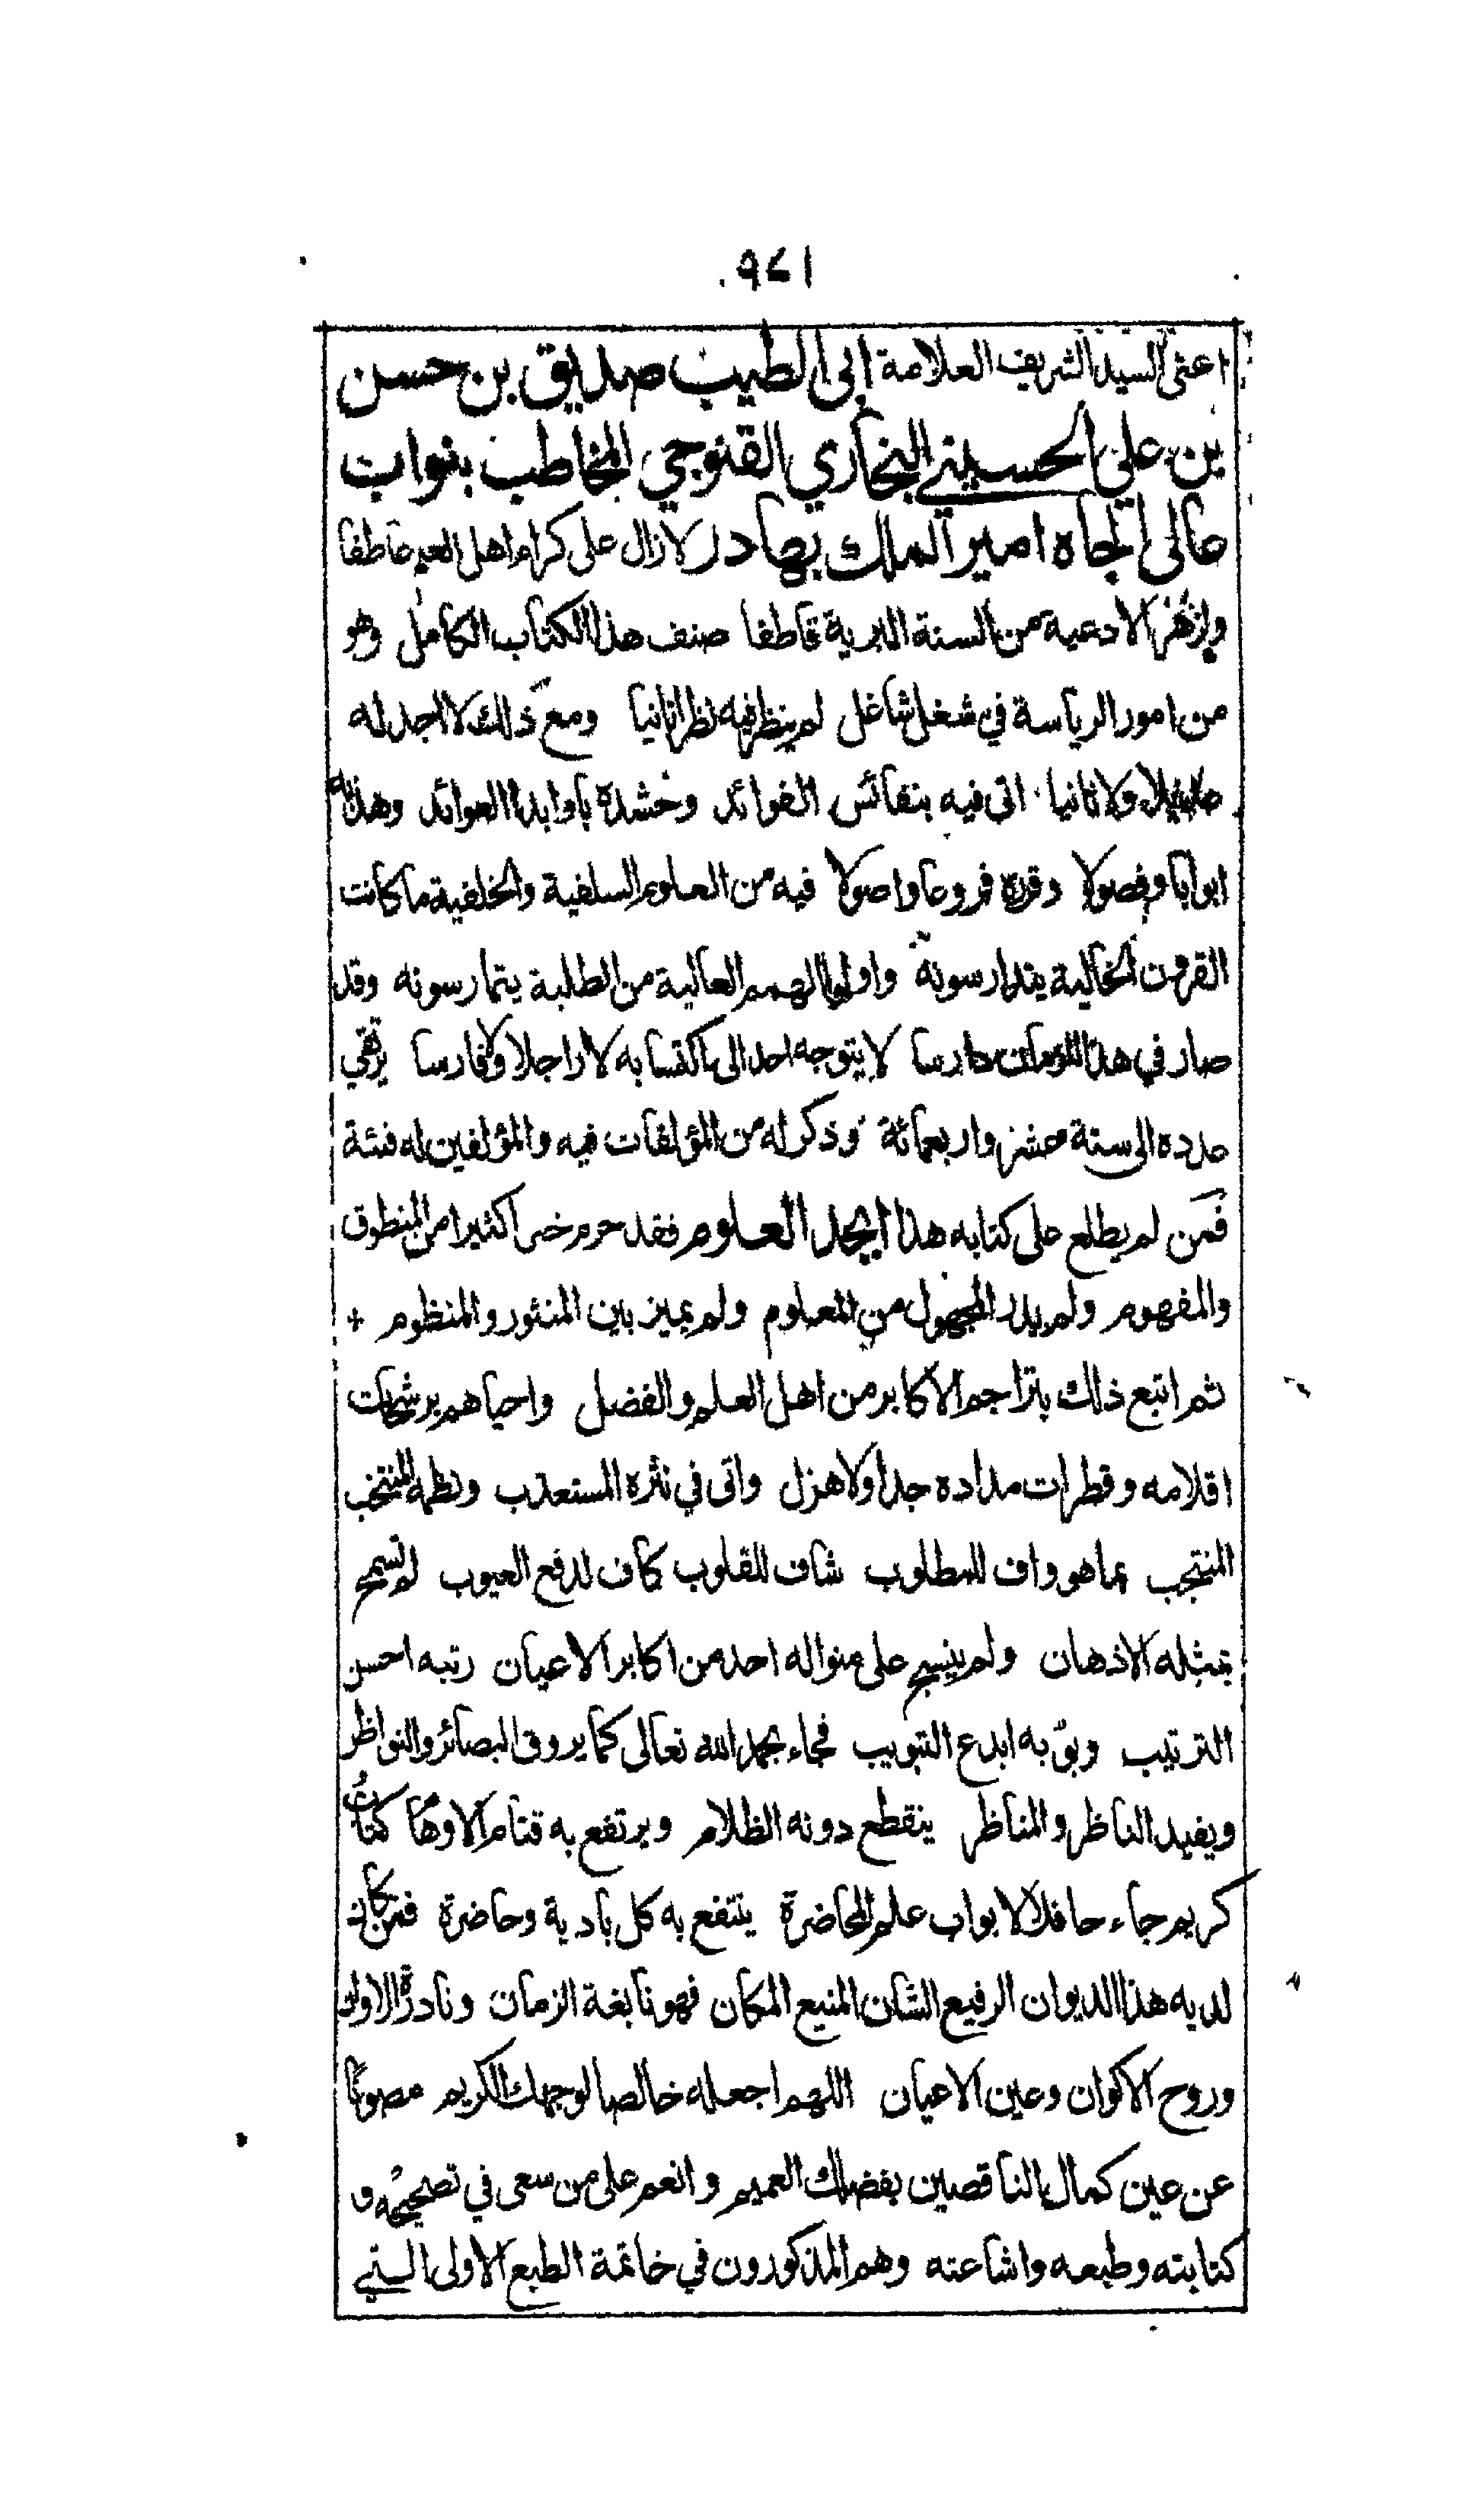 ٩٧١
اعنى السيد الشريف العلامة ابى الطيب صديق بن حسن
بن على الحسيني البخاري القنوجي المخاطب بنواب
عالى الجاه امير الملك بهادر لازال على كرام اهل العلم عاطفا
ولزهر الادعية من السنة البرية قاطفا صنف هذا الكتاب الكامل وهو
من امور الرياسة في شغل شاغل لم ينظر فيه نظرا ثانيا ومع ذلك لا اجد له
مثيلا ولا ثانيا اتى فيه بنفائس الفوائد وحشده باوابد العوائد وهذبه
ابوابا وفصولا وقرره فروعا واصولا فيه من العلوم السلفية والخلفية ما كانت
القرون الخالية يتدارسونه واولوا الهمم العالية من الطلبة يتمارسونه وقد
صار في هذا الزمان دارسا لا يتوجه احد الى اكتسابه لا راجلا ولا فارسا يرتقي
عدده الى ستة عشر واربعمائة وذكر له من المؤلفات فيه والمؤلفين له فئة
فمن لم يطلع على كتابه هذا ابجد العلوم فقد حرم خيرا كثيرا من المنطوق
والمفهوم ولم يدر المجهول من المعلوم ولم يميز بين المنثور والمنظوم +
ثم اتبع ذلك بتراجم الاكابر من اهل العلم والفضل واحياهم برشحات
اقلامه وقطرات مداده جدا ولا هزل واتى في نثره المستعذب ونظمه المنتخب
المنتجب بما هو واف للمطلوب شاف للقلوب كاف لدفع العيوب لم تسمح
بمثله الاذهان ولم ينسج على منواله احد من اكابر الاعيان رتبه احسن
الترتيب وبوّبه ابدع التبويب فجاء بحمد الله تعالى كما يروق البصائر والنواظر
ويفيد الناظر والمناظر ينقطع دونه الظلام ويرتفع به قتام الاوهام كتابٌ
كريم جاء حافلا لابواب علم المحاضرة ينتفع به كل بادية وحاضرة فمن كان
لديه هذا الديوان الرفيع الشان المنيع المكان فهو نابغة الزمان ونادرة الاوان
وروح الاكوان وعين الاعيان اللهم اجعله خالصا لوجهك الكريم مصونًا
عن عين كمال الناقصين بفضلك العميم وانعم على من سعى في تصحيحه و
كتابته وطبعه واشاعته وهم المذكورون في خاتمة الطبع الاولى السني